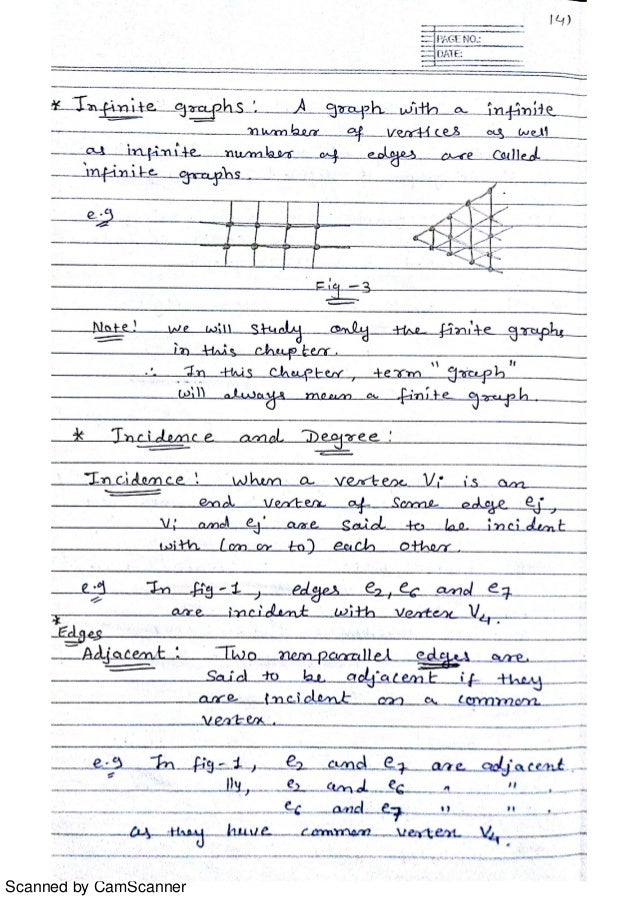 (4)
PAGE NO.:
DATE:
* Infinite graphs : A graph with a infinite
number of vertices as well
as infinite number of edges are called
infinite graphs.
e.g
Fig - 3
Note! we will study only the finite graphs
in this chapter.
∴ In this chapter, term "graph"
will always mean a finite graph.
* Incidence and Degree :
Incidence ! When a vertex Vi is an
end vertex of some edge ej,
Vi and ej are said to be incident
with (on or to) each other.
e.g In fig-1, edges e2, e6 and e7
are incident with vertex V4.
* Edges
Adjacent : Two nonparallel edges are
said to be adjacent if they
are incident on a common
vertex.
e.g In fig-1, e2 and e7 are adjacent.
lly, e2 and e6 " " .
e6 and e7 " " .
as they have common vertex V4.
Scanned by CamScanner